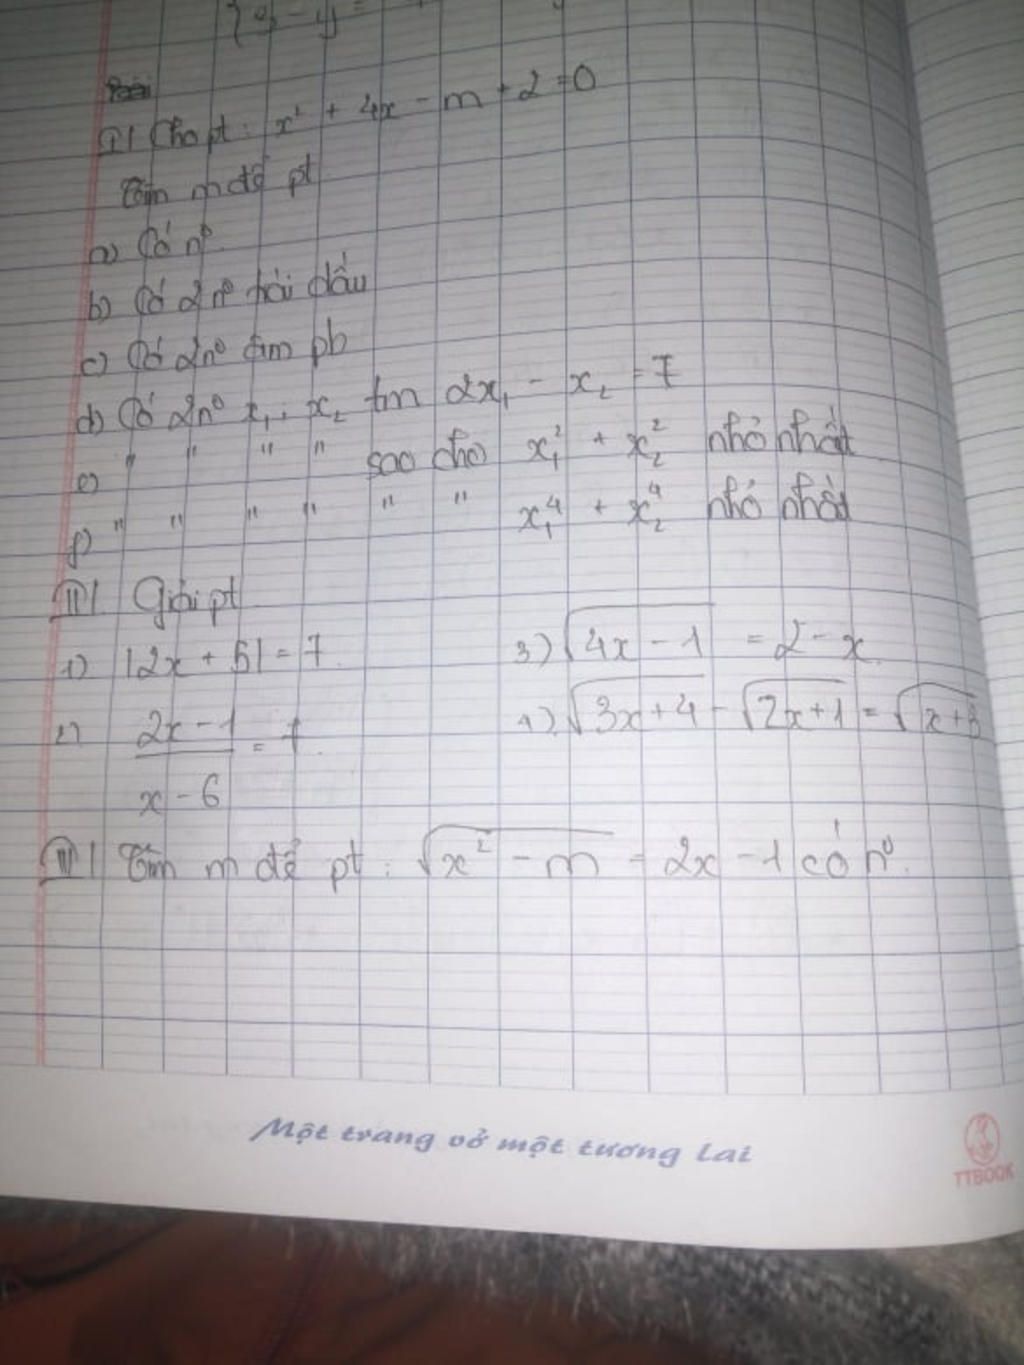 I/ Cho pt: x² + 4x - m + 2 = 0
Tìm m để pt
a) Có n⁰
b) Có 2n⁰ trái dấu
c) Có 2n⁰ âm pb
d) Có 2n⁰ x₁, x₂ tm 2x₁ - x₂ = 7
e) " " " " sao cho x₁² + x₂² nhỏ nhất
f) " " " " " " x₁⁴ + x₂⁴ nhỏ nhất
II/ Giải pt
1) |2x + 5| = 7
3) √(4x - 1) = 2 - x
2) (2x - 1)/(x - 6) = 1
4) √(3x + 4) - √(2x + 1) = √(x + 3)
III/ Tìm m để pt: √(x² - m) = 2x - 1 có n⁰.
Một trang vở một tương lai
TTBOOK